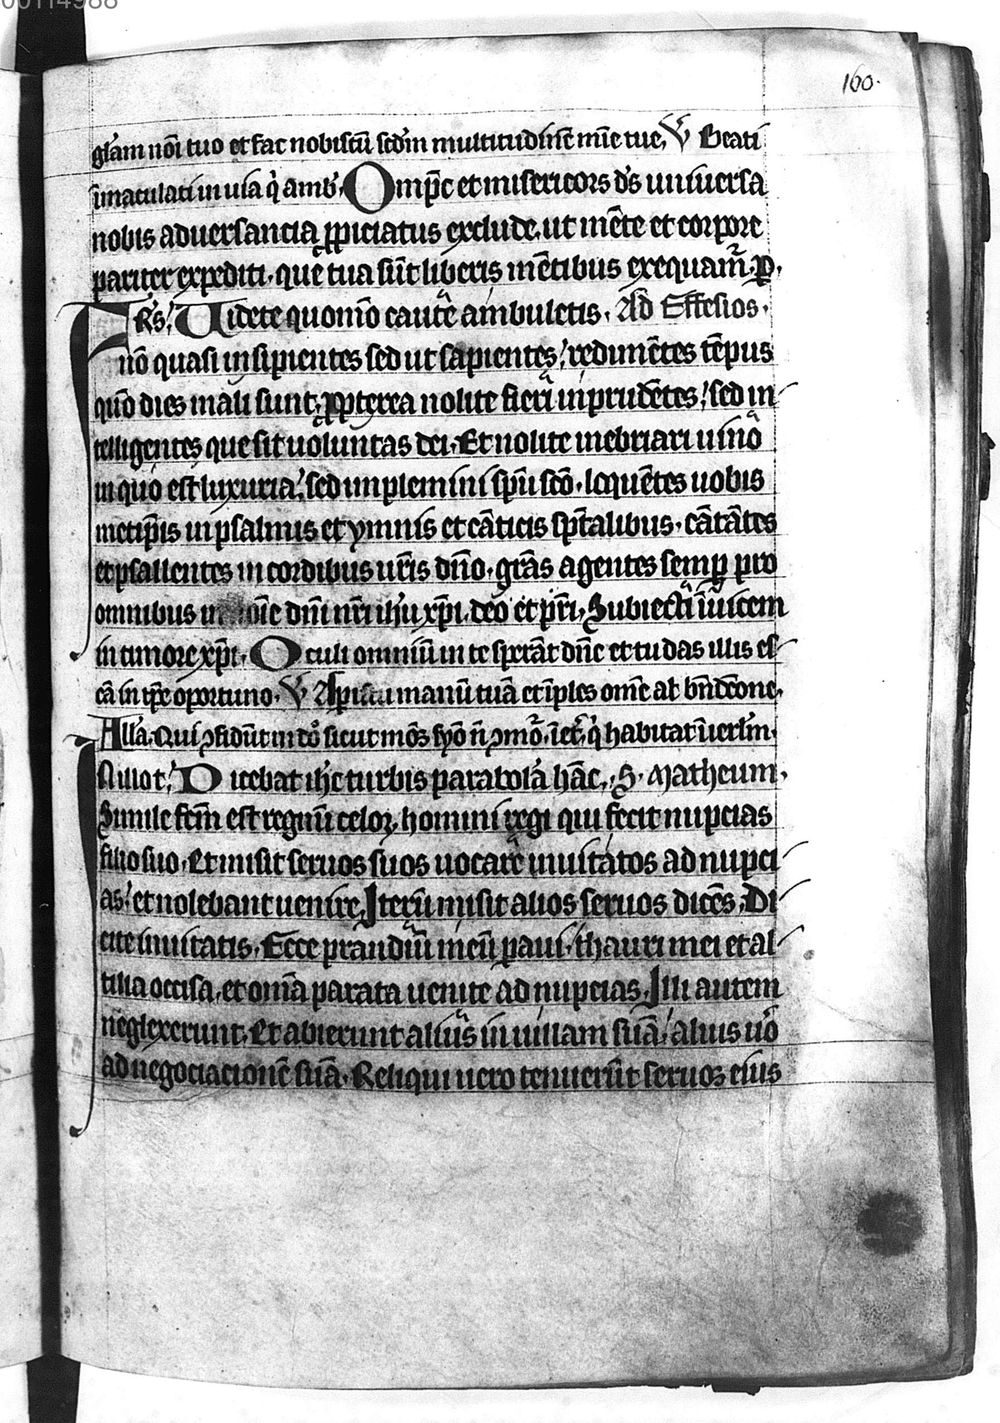 00114988
160.
gl̄am nōi tuo et fac nobiscū scd̄m multitudinē mīe tue, V Beati
īmaculati in uia q̄ amb̄. Omp̄c et misericors d̄s uniuersa
nobis aduersancia ꝓpiciatus exclude. ut mēte et corpore
pariter expediti. que tua sūt liberis mētibus exequam̄. p̄.
FRs. Uidete quomō caute ambuletis. Ad Effesios.
nō quasi insipientes sed ut sapientes, redimētes tēpus
qm̄o dies mali sunt. ꝓpterea nolite fieri inprudētes, sed in
telligentes que sit uoluntas dei. Et nolite inebriari uino
in quo est luxuria, sed implemini sp̄u sc̄o. loquētes uobis
metip̄is in psalmis et ymnis et cāticis sp̄talibus. cātātes
et psallentes in cordibus ur̄is dn̄o. gr̄as agentes semꝑ pro
omnibus in noīe dn̄i nr̄i ih̄u xp̄i. deo et pr̄i. Subiecti īuicem
in timore xp̄i. Oculi omniū in te sperāt dn̄e et tu das illis es
cā in tp̄e oportuno. V Apis tu manū tuā et īples om̄e al bn̄dcōne.
All̄a. Qui ꝯfidūt in dn̄o sicut mōs syō n̄ ꝯmō. ī et̄. q̄ habitat ī ierl̄m.
In illo t. Dicebat ih̄c turbis parabolā hāc. S. Matheum.
Simile fc̄m est regnū celoꝝ. homini regi qui fecit nupcias
filio suo. Et misit seruos suos uocare inuitatos ad nupci
as. et nolebant uenire. Iterū misit alios seruos dicēs. Di
cite inuitatis. Ecce prandiū meū paui. thauri mei et al
tilia occisa. et om̄ia parata uenite ad nupcias. Illi autem
neglexerunt. Et abierunt alius in uillam suā. alius uō
ad negociacionē suā. Reliqui uero tenuerūt seruos eius